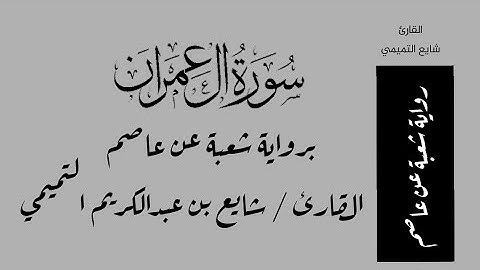 القارئ
شايع التميمي
سورة آل عمران
برواية شعبة عن عاصم
القارئ / شايع بن عبدالكريم التميمي
رواية شعبة عن عاصم